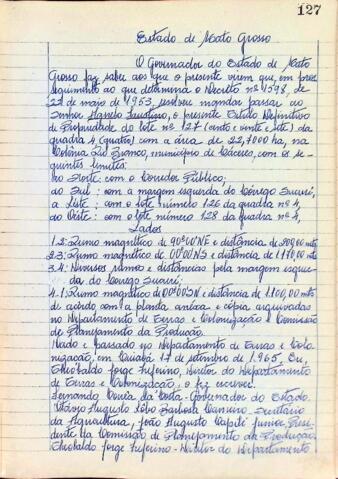 127
Estado de Mato Grosso
O Governador do Estado de Mato
Grosso faz saber aos que o presente virem que, em pros
seguimento ao que determina o Decreto nº 1598, de
22 de maio de 1953, resolveu mandar passar ao
Senhor Faustino, o presente Estado Definitivo
de Propriedade do lote nº 127 (cento e vinte e sete) da
quadra 4 (quatro) com a área de 22,7000 ha, na
Colônia Rio Branco, município de Cáceres, com os se
guintes limites:
ao Norte: com o Corredor Público;
ao Sul: com a margem esquerda do Córrego
a Leste: com o lote número 126 da quadra nº 4,
ao Oeste: com o lote número 128 da quadra nº 4,
Lados
1.2: Rumo magnético de 90º00'NE e distância de 200,00 mts
2.3: Rumo magnético de 00º00'NS e distância de 1.170,00 mts
3.4: Diversos rumos e distâncias pela margem esquer
da do Córrego
4.1: Rumo magnético de 00º00'SN e distância de 1.100,00 mts
de acôrdo com a planta anéxa e cópia arquivadas
no Departamento de Terras e Colonização e Comissão
de Planejamento da Produção.
Dado e Passado no Departamento de Terras e Colo
nização, em Cuiabá 17 de setembro de 1.965, Eu,
Theobaldo Jorge, Diretor do Departamento
de Terras e Colonização, o fiz escrever.
Fernando Corrêa da Costa - Governador do Estado.
Vitório Augusto Lobo Barbosa - Secretário
da Agricultura, João Augusto Capilé Junior Presi
dente da Comissão de Planejamento da Produção.
Theobaldo Jorge - Diretor do Departamento